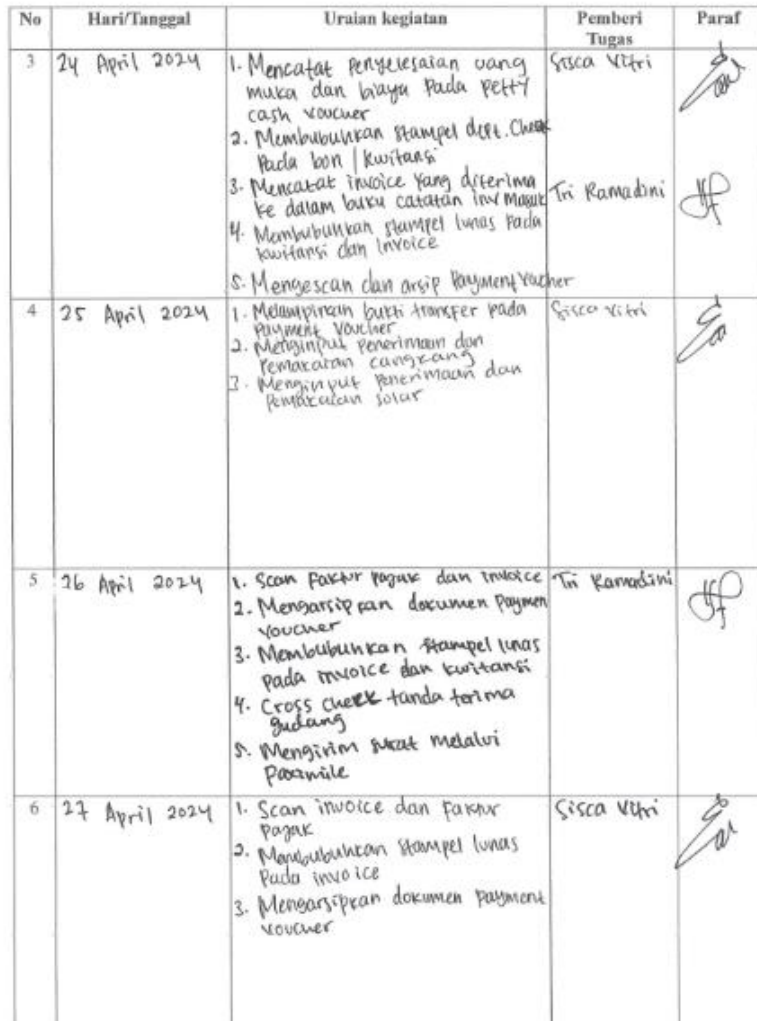 No Hari/Tanggal Uraian kegiatan Pemberi Tugas Paraf
3 24 April 2024 1. Mencatat penyelesaian uang Sisca Vitri
muka dan biaya pada petty
cash voucher
2. Membubuhkan stampel dept. Check
pada bon / kwitansi
3. Mencatat invoice yang diterima
ke dalam buku catatan inv masuk Tri Ramadini
4. Membubuhkan stampel lunas pada
kwitansi dan invoice
5. Mengescan dan arsip Payment Vaucher
4 25 April 2024 1. Melampirkan bukti transfer pada Sisca Vitri
Payment Voucher
2. Menginput penerimaan dan
pemakaian cangkang
3. Menginput penerimaan dan
pemakaian solar
5 26 April 2024 1. Scan faktur pajak dan invoice Tri Ramadini
2. Mengarsipkan dokumen Paymen
voucher
3. Membubuhkan stampel lunas
pada invoice dan kwitansi
4. Cross check tanda terima
gudang
5. Mengirim surat melalui
faxmile
6 27 April 2024 1. Scan invoice dan faktur Sisca Vitri
pajak
2. Membubuhkan stampel lunas
pada invoice
3. Mengarsipkan dokumen payment
voucher